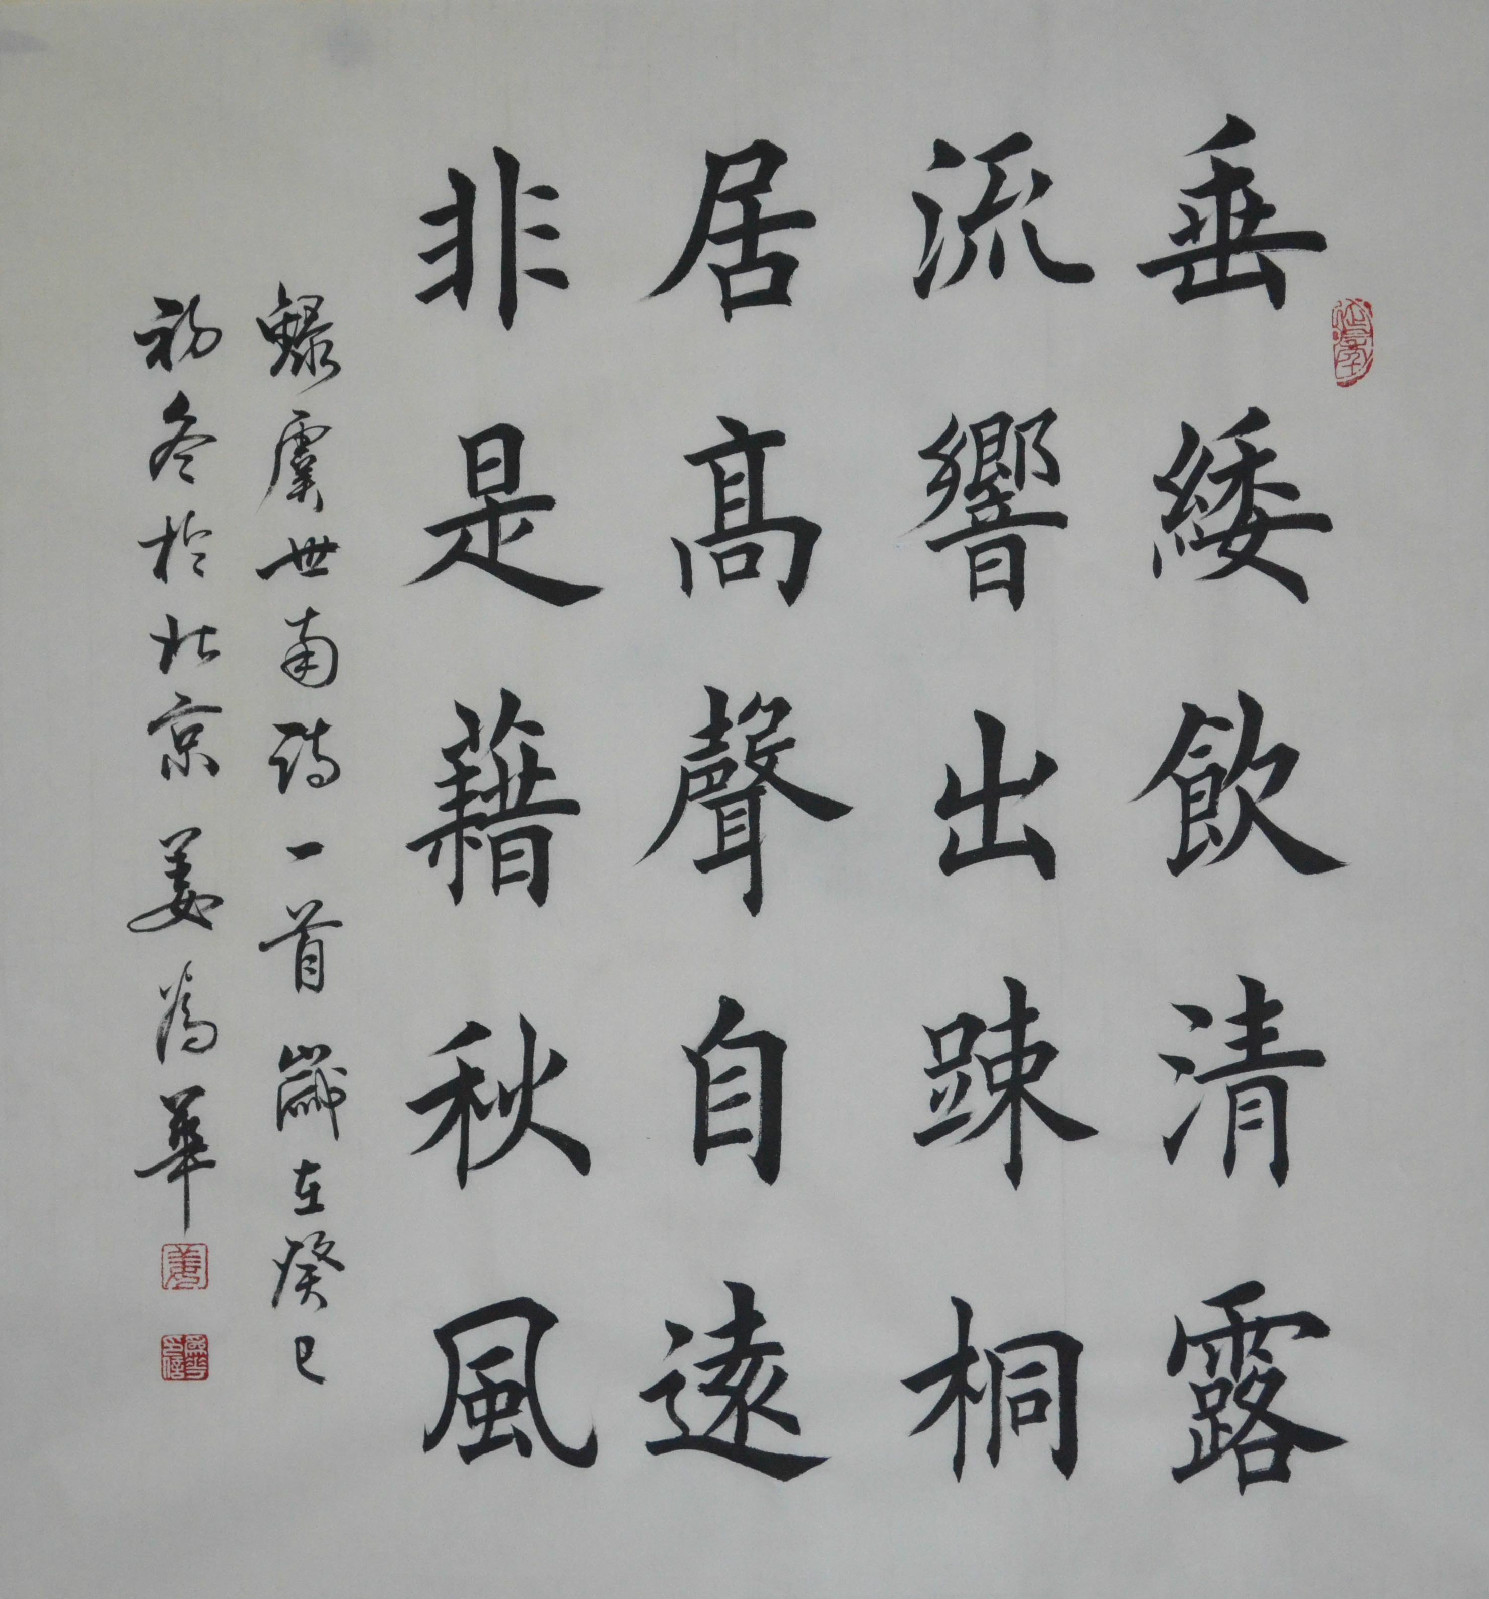 垂緌飲清露
流響出踈桐
居髙聲自遠
非是藉秋風
録虞世南詩一首歲在癸巳
初冬於北京姜為華